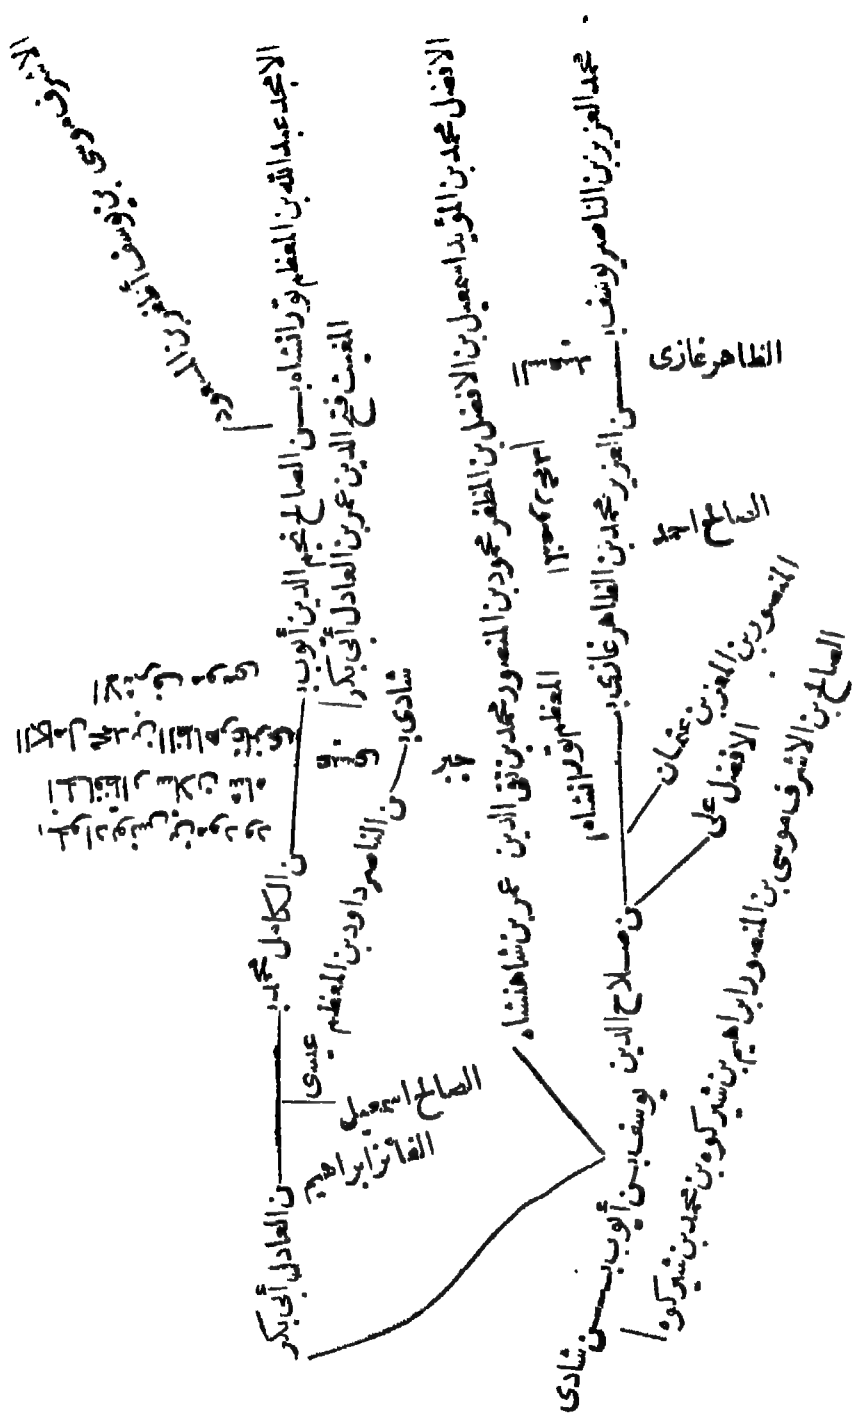 محمد العزيز بن الناصر يوسف بن العزيز محمد بن الظاهر غازى بن صلاح الدين يوسف بن أيوب بن شادى
الظاهر غازى
الصالح احمد
المنصور بن العزيز بن عثمان
الافضل على
الصالح بن الاشرف موسى بن المنصور ابراهيم بن شيركوه بن محمد بن شيركوه
المعظم تورانشاه
الافضل محمد بن المؤيد اسمعيل بن الافضل بن المظفر محمود بن المنصور محمد بن تقى الدين عمر بن شاهنشاه
الامجد عبدالله بن المعظم تورانشاه بن الصالح نجم الدين أيوب بن الكامل محمد بن العادل أبى بكر
المغيث فتح الدين عمر بن العادل أبى بكر
الاشرف موسى بن يوسف
المسعود
شادى بن الناصر داود بن المعظم عيسى
الصالح اسمعيل
الفائز ابراهيم
الاشرف موسى
الكامل محمد بن الظاهر غازى
الحافظ ارسلان شاه
الجواد يونس بن مودود